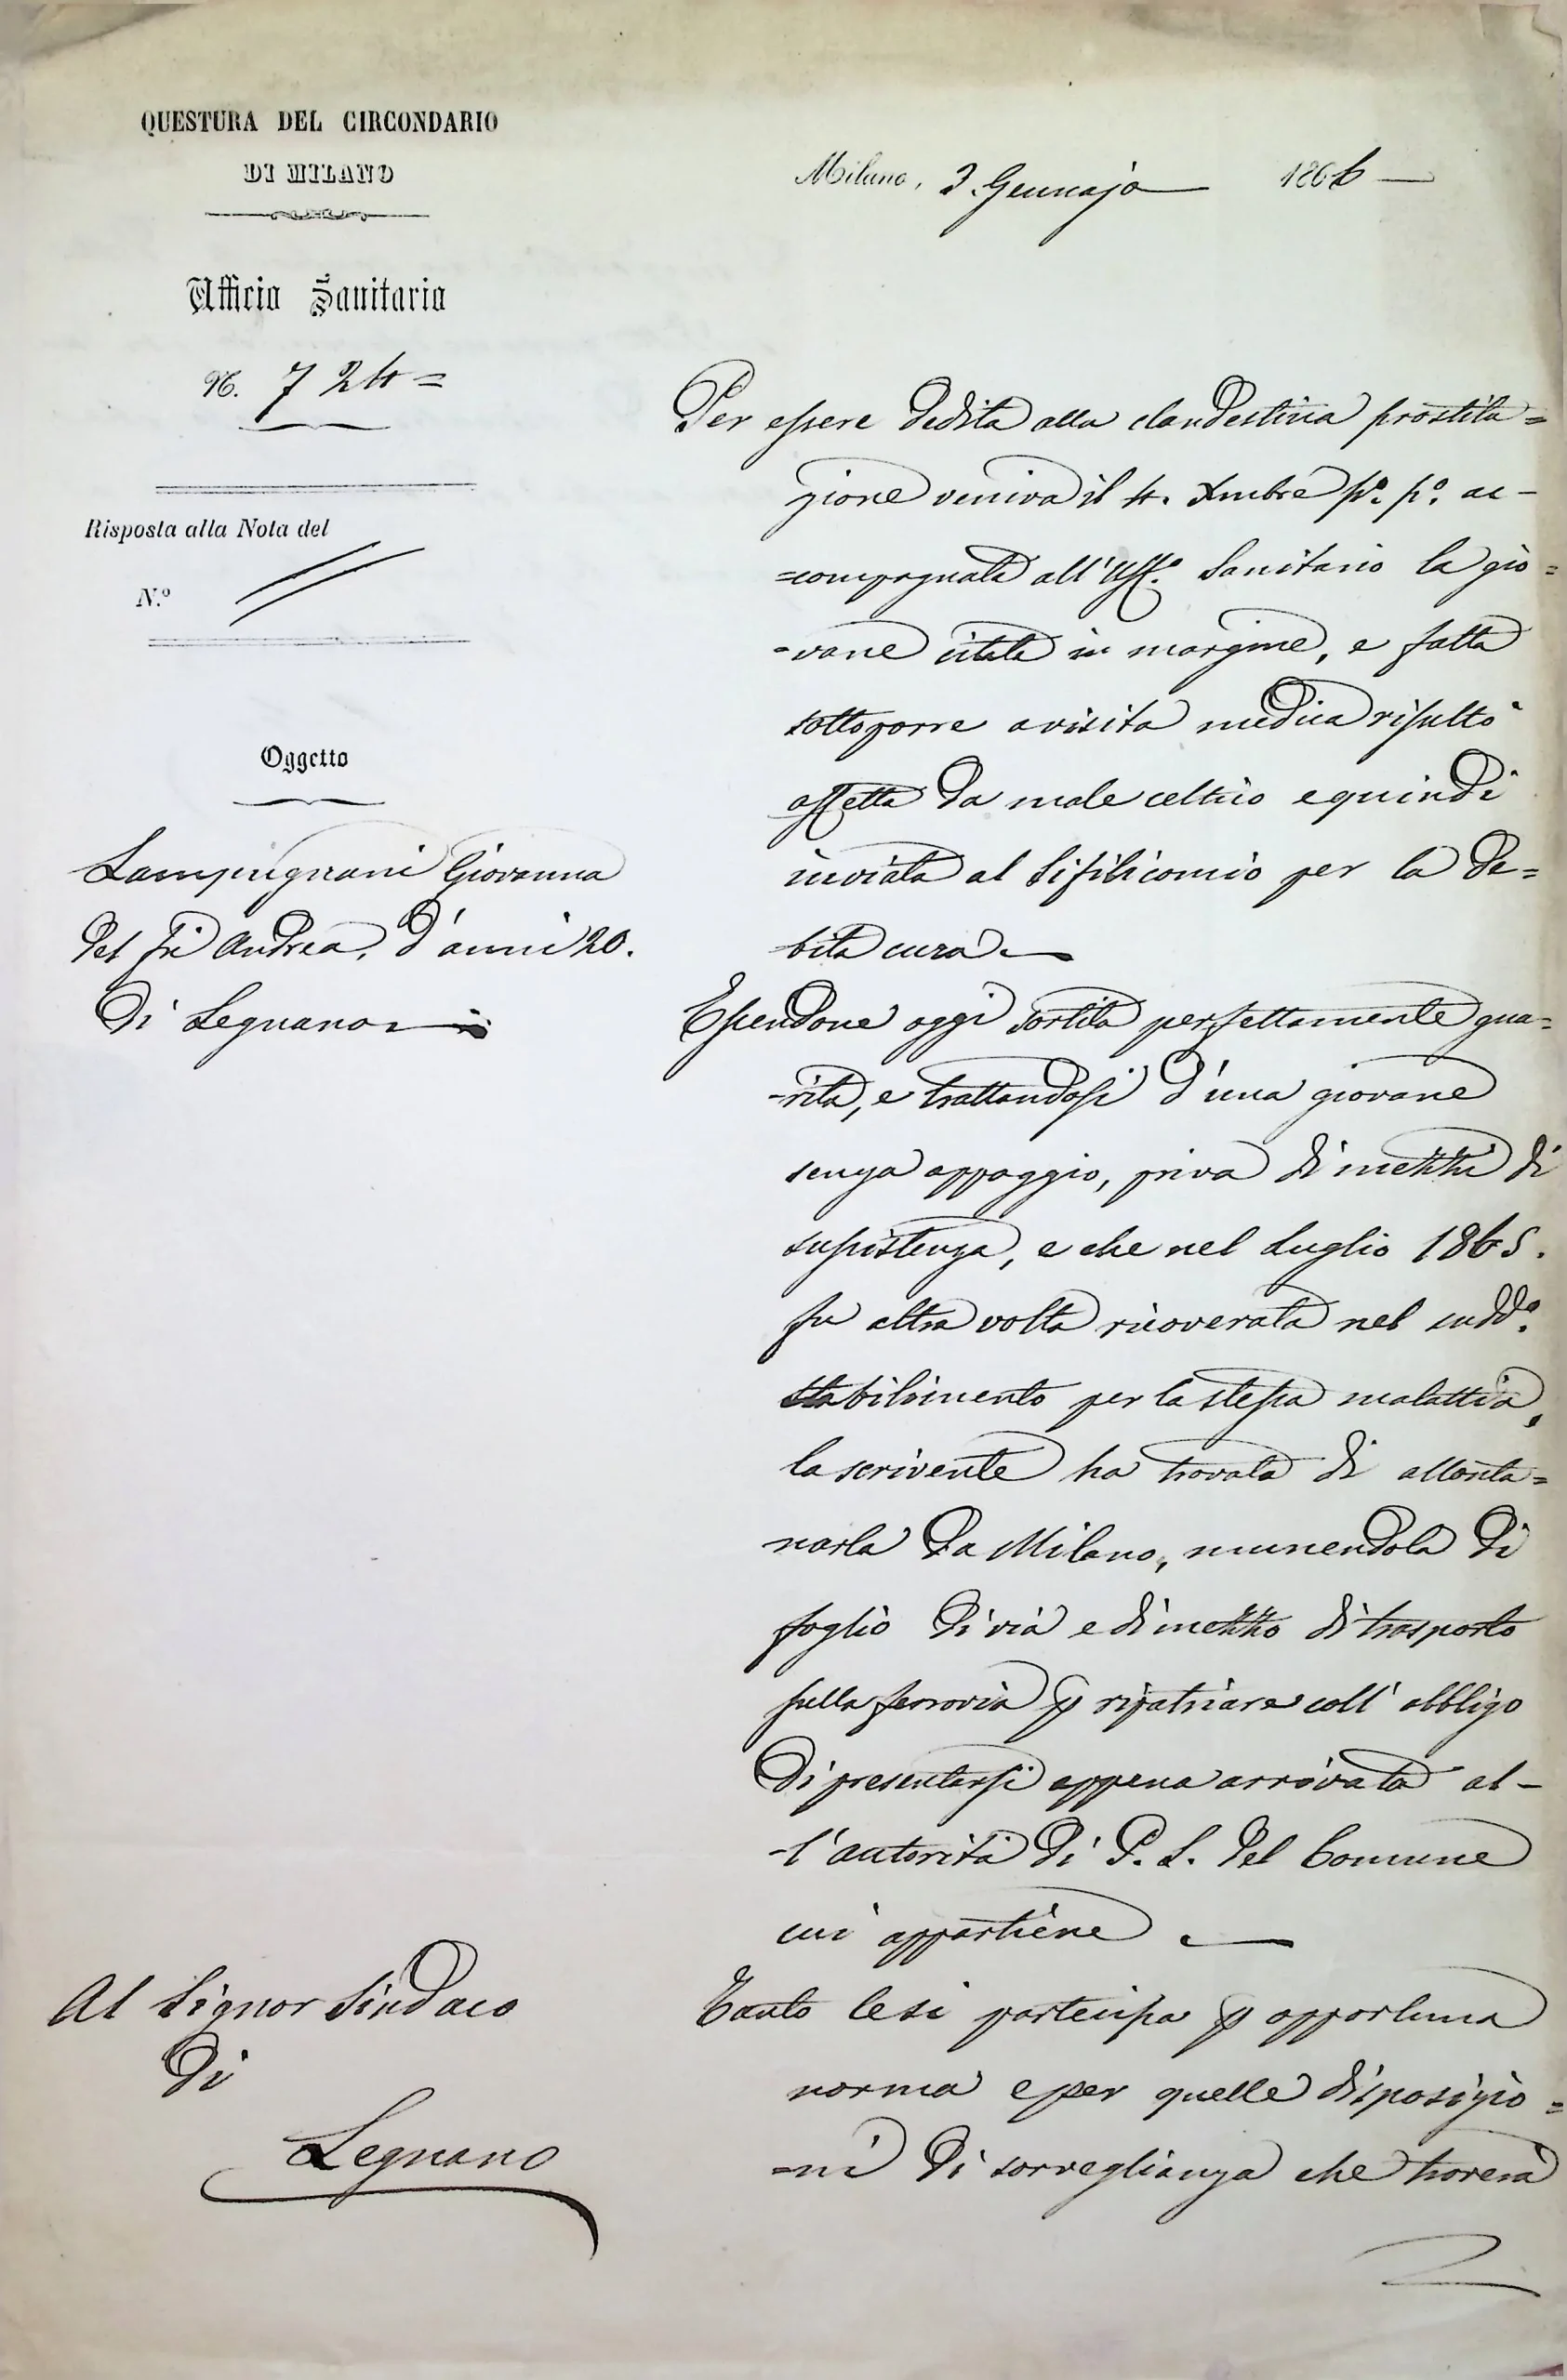 QUESTURA DEL CIRCONDARIO
DI MILANO
Ufficio Sanitario
N. 724=
Risposta alla Nota del
N.º
Oggetto
Lampugnani Giovanna
del fu Andrea, d'anni 20.
di Legnano
Al Signor Sindaco
di
Legnano
Milano, 3. Gennajo 1866
Per essere dedita alla clandestina prostitu=
zione veniva il 4. Xmbre pº. pº. ac-
=compagnata all'Uffº. Sanitario la gio=
-vane citata in margine, e fatta
sottoporre a visita medica risultò
affetta da male celtico e quindi
inviata al Sifilicomio per la de=
bita cura
Essendone oggi sortita perfettamente gua=
-rita, e trattandosi d'una giovane
senza appoggio, priva di mezzi di
sussistenza, e che nel Luglio 1865.
fu altra volta ricoverata nel suddº.
stabilimento per la stessa malattia,
la scrivente ha trovato di allonta=
narla da Milano, munendola di
foglio di via e di mezzo di trasporto
sulla ferrovia p ripatriare coll'obbligo
di presentarsi appena arrivata al-
-l'autorità di P. S. del Comune
cui appartiene
Tanto le si partecipa p opportuna
norma e per quelle disposizio=
=ni di sorveglianza che troverà